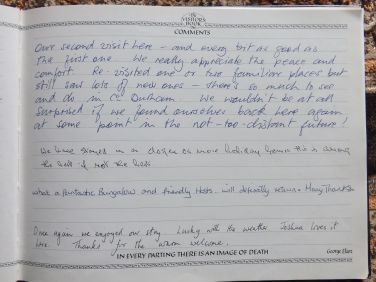 THE
VISITORS
BOOK
COMMENTS
Our second visit here – and every bit as good as
the first one. We really appreciate the peace and
comfort. Re-visited one or two familiar places but
still saw lots of new ones – there's so much to see
and do in Co. Durham. We wouldn't be at all
surprised if we found ourselves back here again
at some 'point' in the not-too-distant future!
We have in a or more holiday this is among
the best if not the best
What a fantastic Bungalow and friendly Hosts. Will definitely return. Many Thanks
Once again we enjoyed our stay. Lucky with the weather. Joshua loves it
here. Thanks for the warm welcome.
IN EVERY PARTING THERE IS AN IMAGE OF DEATH
George Eliot